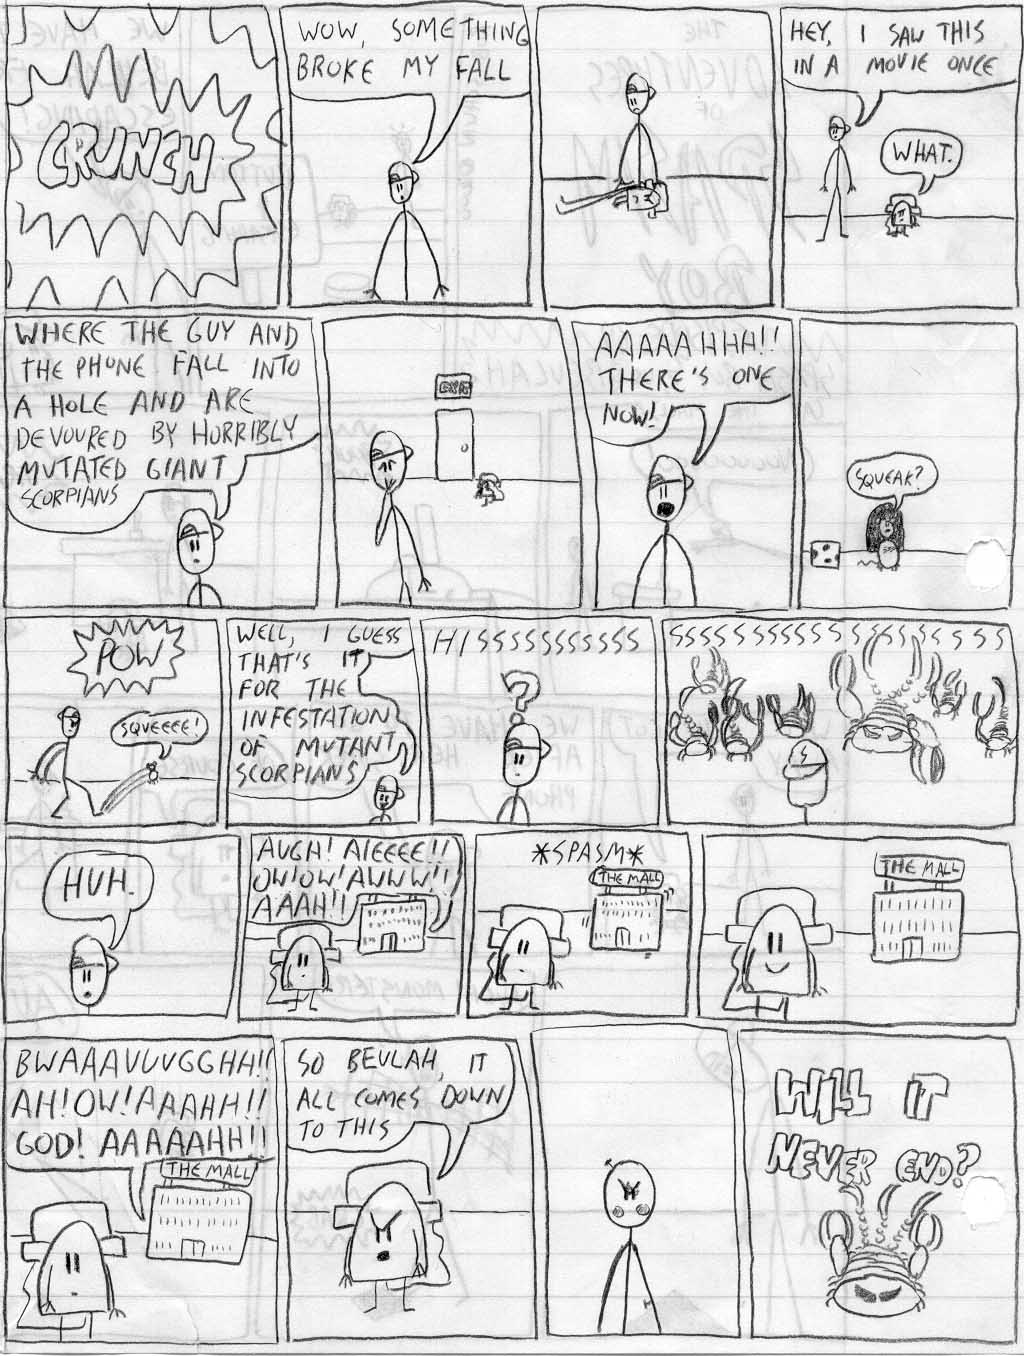 CRUNCH
WOW, SOMETHING
BROKE MY FALL
HEY, I SAW THIS
IN A MOVIE ONCE
WHAT.
WHERE THE GUY AND
THE PHONE FALL INTO
A HOLE AND ARE
DEVOURED BY HORRIBLY
MUTATED GIANT
SCORPIANS
EXIT
AAAAAHHH!!
THERE'S ONE
NOW!
SQUEAK?
POW
SQUEEEE!
WELL, I GUESS
THAT'S IT
FOR THE
INFESTATION
OF MUTANT
SCORPIANS
HISSSSSSSSSSS
?
SSSSSSSSSSSSSSSSSS
HUH.
AUGH! AIEEEE!!
OW!OW!AWWW!!
AAAH!!
*SPASM*
THE MALL
THE MALL
BWAAAVUUGGHH!!
AH!OW!AAAHH!!
GOD! AAAAAHH!!
THE MALL
SO BEULAH, IT
ALL COMES DOWN
TO THIS
WILL IT
NEVER END?